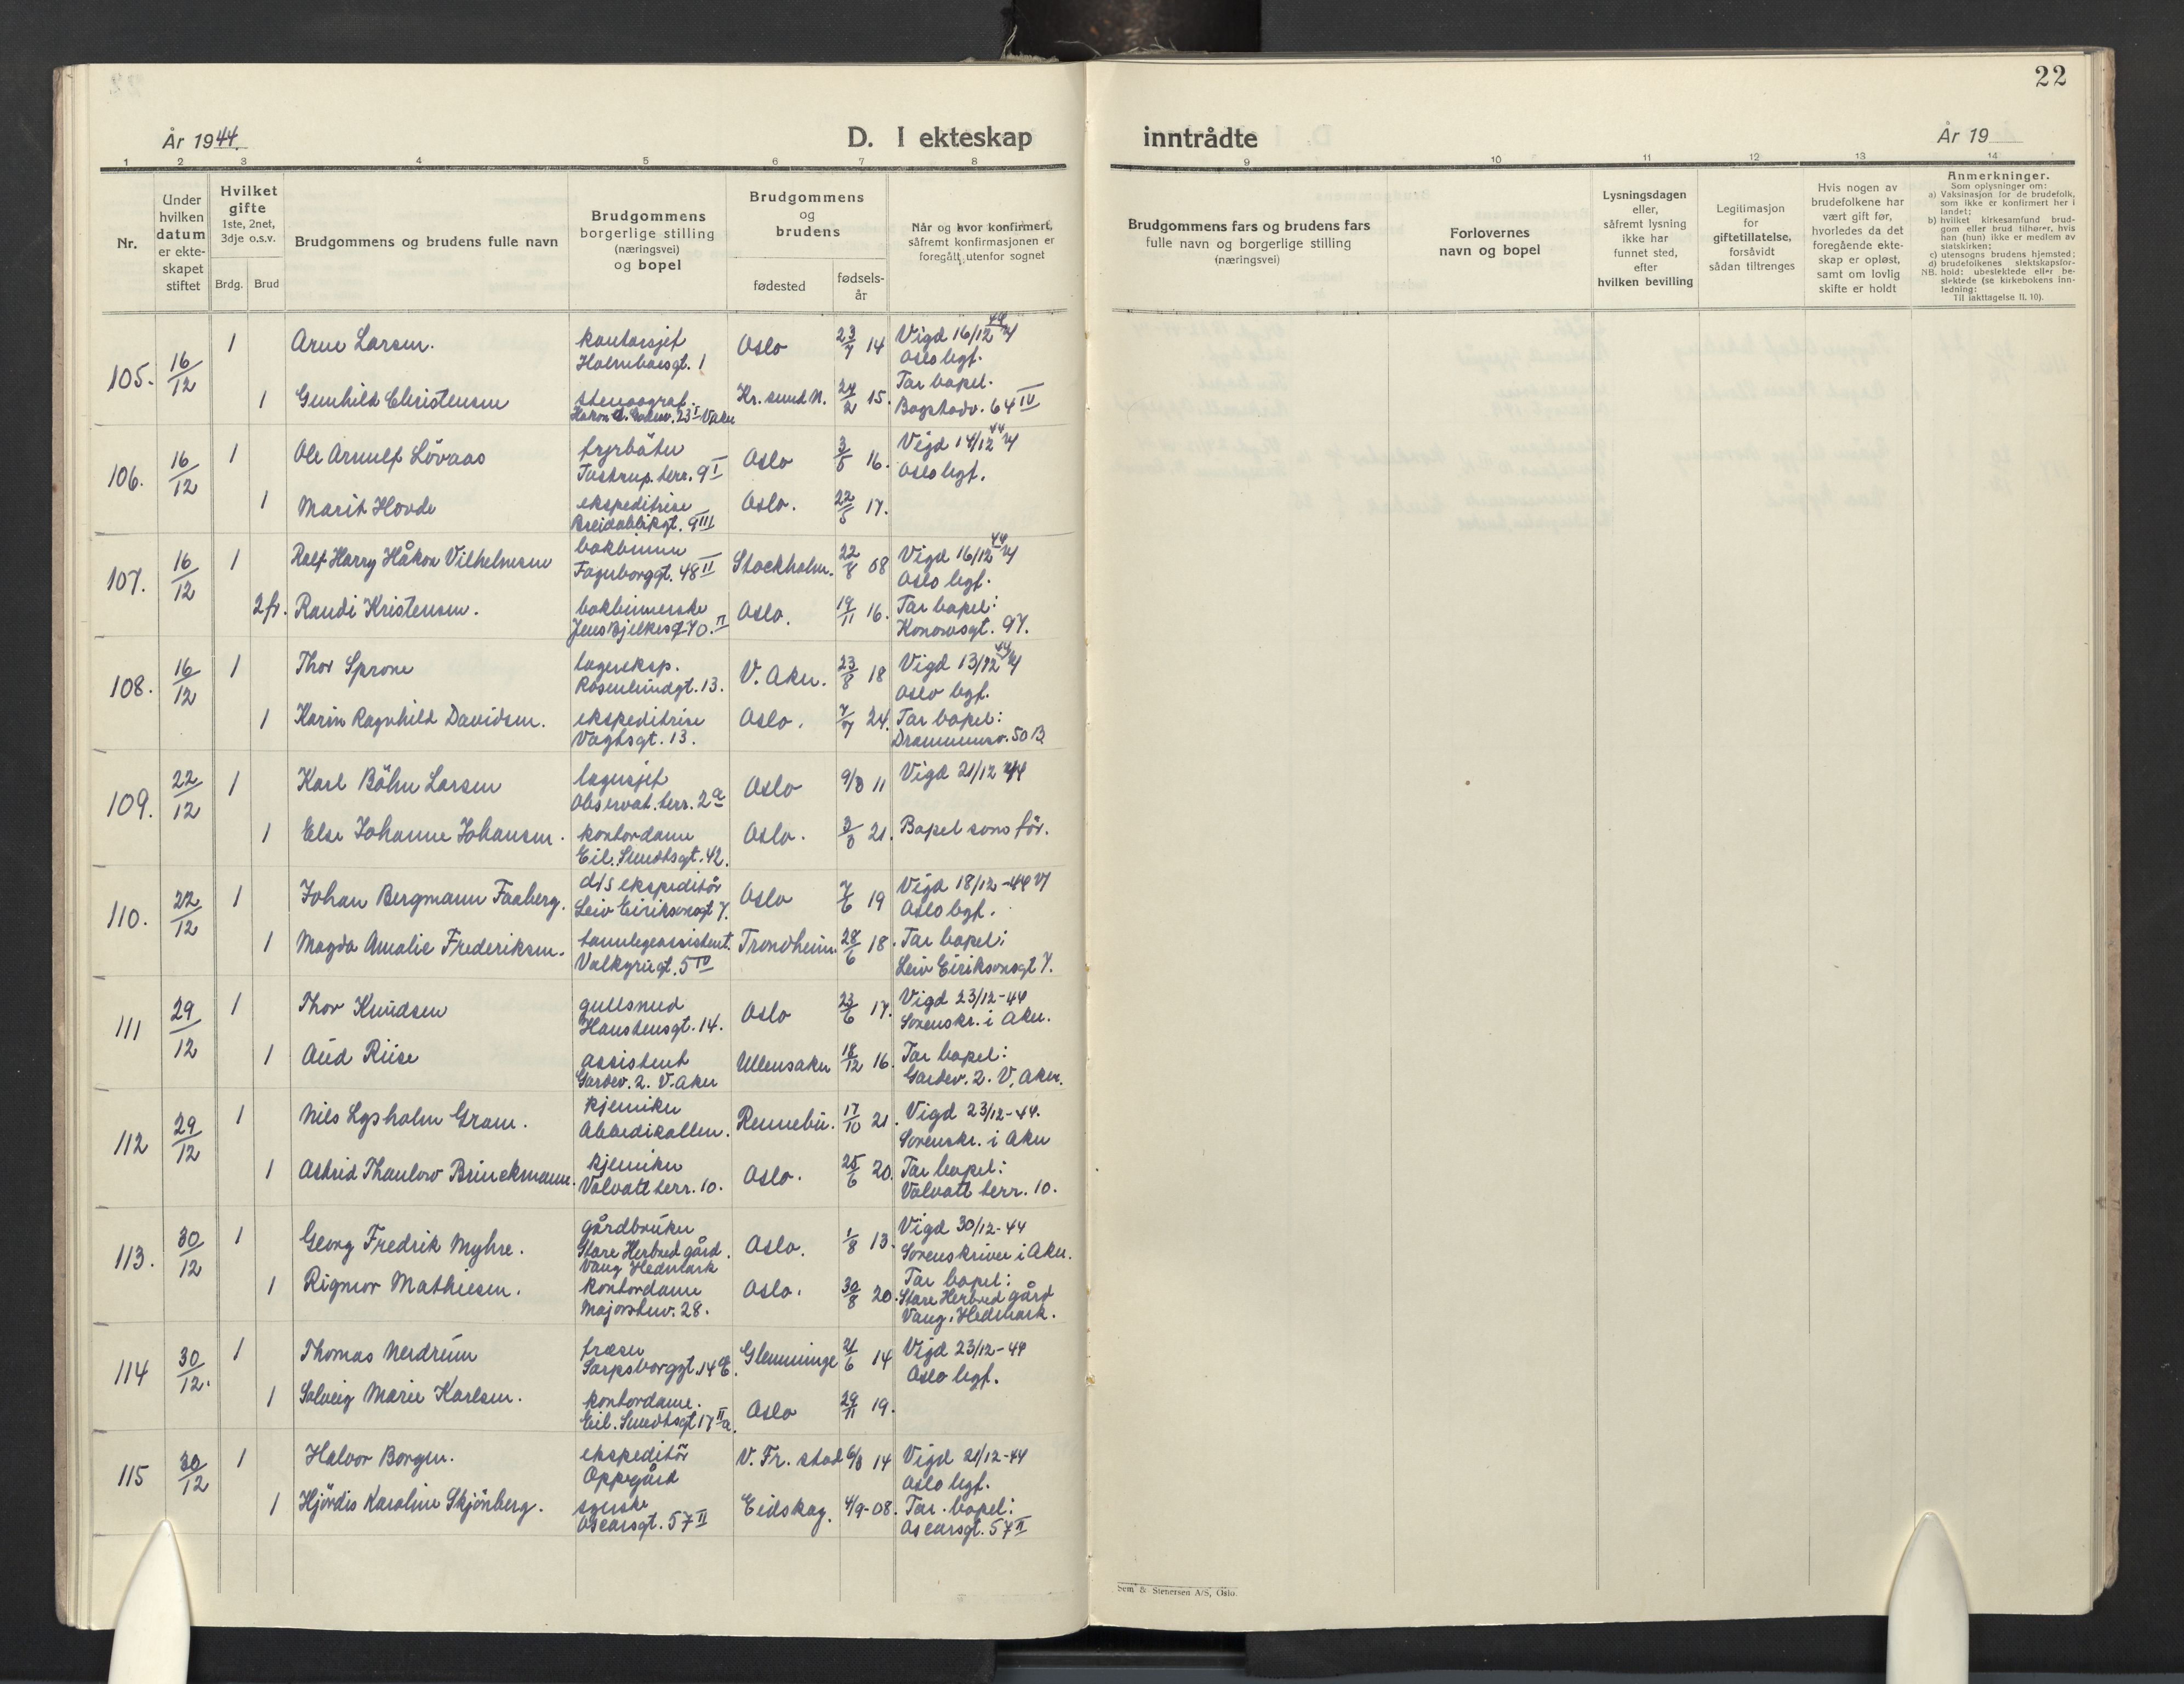 22
År 1944.
D. I ekteskap inntrådte
År 19
1 2 3 4 5 6 7 8 9 10 11 12 13 14
Nr.
Under
hvilken
datum
er ekte-
skapet
stiftet
Hvilket
gifte
1ste, 2net,
3dje o.s.v.
Brdg. Brud
Brudgommens og brudens fulle navn
Brudgommens
borgerlige stilling
(næringsvei)
og bopel
Brudgommens
og
brudens
fødested
fødsels-
år
Når og hvor konfirmert,
såfremt konfirmasjonen er
foregått utenfor sognet
Brudgommens fars og brudens fars
fulle navn og borgerlige stilling
(næringsvei)
Forlovernes
navn og bopel
Lysningsdagen
eller,
såfremt lysning
ikke har
funnet sted,
efter
hvilken bevilling
Legitimasjon
for
giftetillatelse,
forsåvidt
sådan tiltrenges
Hvis nogen av
brudefolkene har
vært gift før,
hvorledes da det
foregående ekte-
skap er opløst,
samt om lovlig
skifte er holdt
Anmerkninger.
Som oplysninger om:
a) Vaksinasjon for de brudefolk,
som ikke er konfirmert her i
landet;
b) hvilket kirkesamfund brud-
gom eller brud tilhører, hvis
han (hun) ikke er medlem av
statskirken;
c) utensogns brudens hjemsted;
d) brudefolkenes slektskapsfor-
NB. hold: ubeslektede eller be-
slektede (se kirkebokens inn-
ledning:
Til iakttagelse II, 10).
105. 16/12 1 Arne Larsen. kontorsjef Oslo 23/7 14 Vigd 16/12 44
Holmboesgt. 1 Oslo bgf.
1 Gunhild Christensen stenograf. Kr.sund N. 24/2 15. Tar bopel.
23 I V. Aker Bogstadv. 64 IV
106. 16/12 1 Ole Arnulf Lövaas fyrböter Oslo 3/5 16. Vigd 14/12 44
Tastrup. terr. 9 I Oslo bgf.
1 Marit Hovde ekspeditrise Oslo. 22/5 17.
Breidablikgt. 9 III
107. 16/12 1 Ralf Harry Håkon Vilhelmsen bokbinner Stockholm. 22/8 08 Vigd 16/12 44
Fagerborggt. 48 II Oslo bgf.
2 fr. Randi Kristensen. bokbinnerske Oslo. 19/11 16. Tar bopel:
Jens Bjelkesgt 70. II Konowsgt. 97.
108. 16/12 1 Thor Sprone lagereksp. V. Aker. 23/8 18 Vigd 13/12 44
Rosenlundgt. 13. Oslo bgf.
1 Karin Ragnhild Davidsen. ekspeditrise Oslo. 7/7 24. Tar bopel:
Vogtsgt. 13. Drammensv. 50 B
109. 22/12 1 Karl Böhn Larsen lagersjef Oslo 9/3 11 Vigd 21/12 44
Observat. terr. 2 a
1 Else Johanne Johansen. kontordame Oslo. 3/3 21. Bopel som för.
Eil. Sundtsgt. 42.
110. 22/12 1 Johan Bergmann Faaberg. d/s ekspeditör Oslo 7/6 19 Vigd 18/12-44
Leiv Eiriksonsgt 7. Oslo bgf.
1 Magda Amalie Frederiksen. tannlegeassistent. Trondheim. 28/6 18. Tar bopel:
Valkyriegt. 5 IV Leiv Eiriksonsgt 7.
111 29/12 1 Thor Knudsen gullsmed Oslo 23/6 17. Vigd 23/12-44
Haustensgt. 14. Sorenskr. i Aker.
1 Aud Riise assistent Ullensaker 18/12 16. Tar bopel:
Gardev. 2. V. Aker Gardev. 2. V. Aker.
112 29/12 1 Nils Lysholm Gram. kjemiker Rennebu. 17/10 21. Vigd 23/12-44.
Abbedikollen. Sorenskr. i Aker
1 Astrid Thaulow Brinckmann. kjemiker Oslo. 25/6 20. Tar bopel:
Volvatt terr. 10. Volvatt terr. 10.
113. 30/12 1 Georg Fredrik Myhre. gårdbruker Oslo. 1/8 13. Vigd 30/12-44
Store Herbred gård. Sorenskriver i Aker.
Vang Hedmark
1 Rigmor Mathiesen. kontordame Oslo. 30/8 20. Tar bopel:
Majorstuv. 28. Store Herbred gård
Vang. Hedmark.
114 30/12. 1 Thomas Nerdrum fræser Glemminge 21/6 14 Vigd 23/12-44
Sarpsborggt. 14 E. Oslo bgf.
1 Solveig Marie Karlsen. kontordame. Oslo 29/11 19.
Eil. Sundtsgt 17 II a.
115 30/12 1 Halvor Borgen. ekspeditör V. Fr. stad 6/3 14 Vigd 21/12-44
Oppegård Oslo bgf.
1 Hjördis Karoline Skjönberg. syerske Eidskog. 4/9-08. Tar bopel:
Oscarsgt. 57 II Oscarsgt. 57 II
Sem & Stenersen A/S, Oslo.